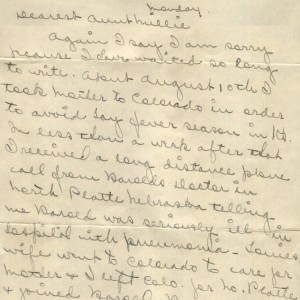 Monday
Dearest Aunt Millie
Again I say, I am sorry
because I have waited so long
to write. About August 10th I
took Mother to Colorado in order
to avoid hay fever season in
In less than a week after that
I received a long distance phone
call from Harolds doctor in
North Platte Nebraska telling
me Harold was seriously ill in
hospital with pneumonia -
wife went to Colorado to care for
Mother & I left Colo. for No. Platte
& joined Harold